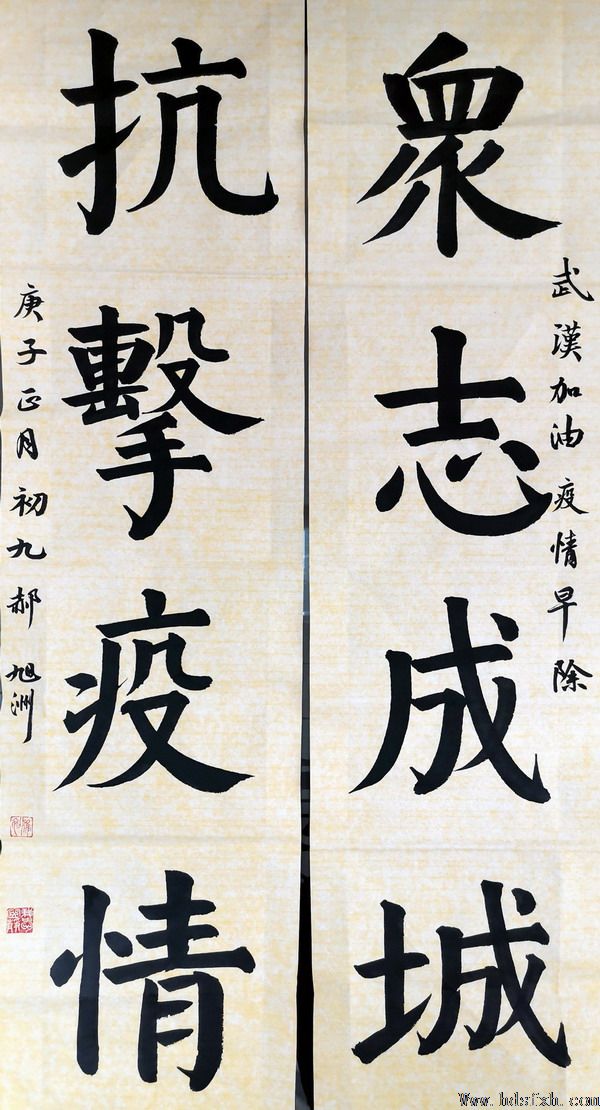 眾志成城
武漢加油疫情早除
抗擊疫情
庚子正月初九郝旭洲
Www.hdsfxh.com